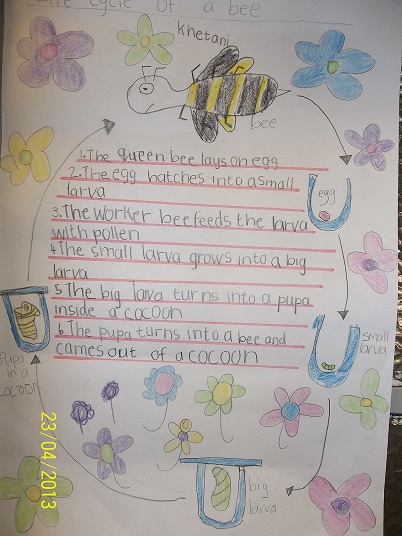 Life cycle of a bee
Khetani
bee
1.The queen bee lays on egg
2.The egg hatches into a small
larva
egg
3.The worker bee feeds the larva
with pollen
4.The small larva grows into a big
larva
5 The big lava turns into a pupa
inside a cocoon
6 The pupa turns into a bee and
cames out of a cocoon
small
larva
Pupa
in a
cocoon
big
larva
23/04/2013